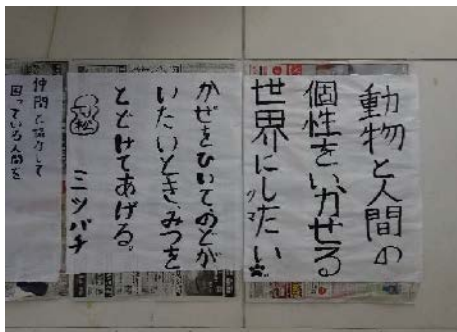 動物と人間の
個性をいかせる
世界にしたい
クマ
かぜをひいてのどが
いたいとき、みつを
とどけてあげる。
ミツバチ
仲間と協力して
困っている人間を